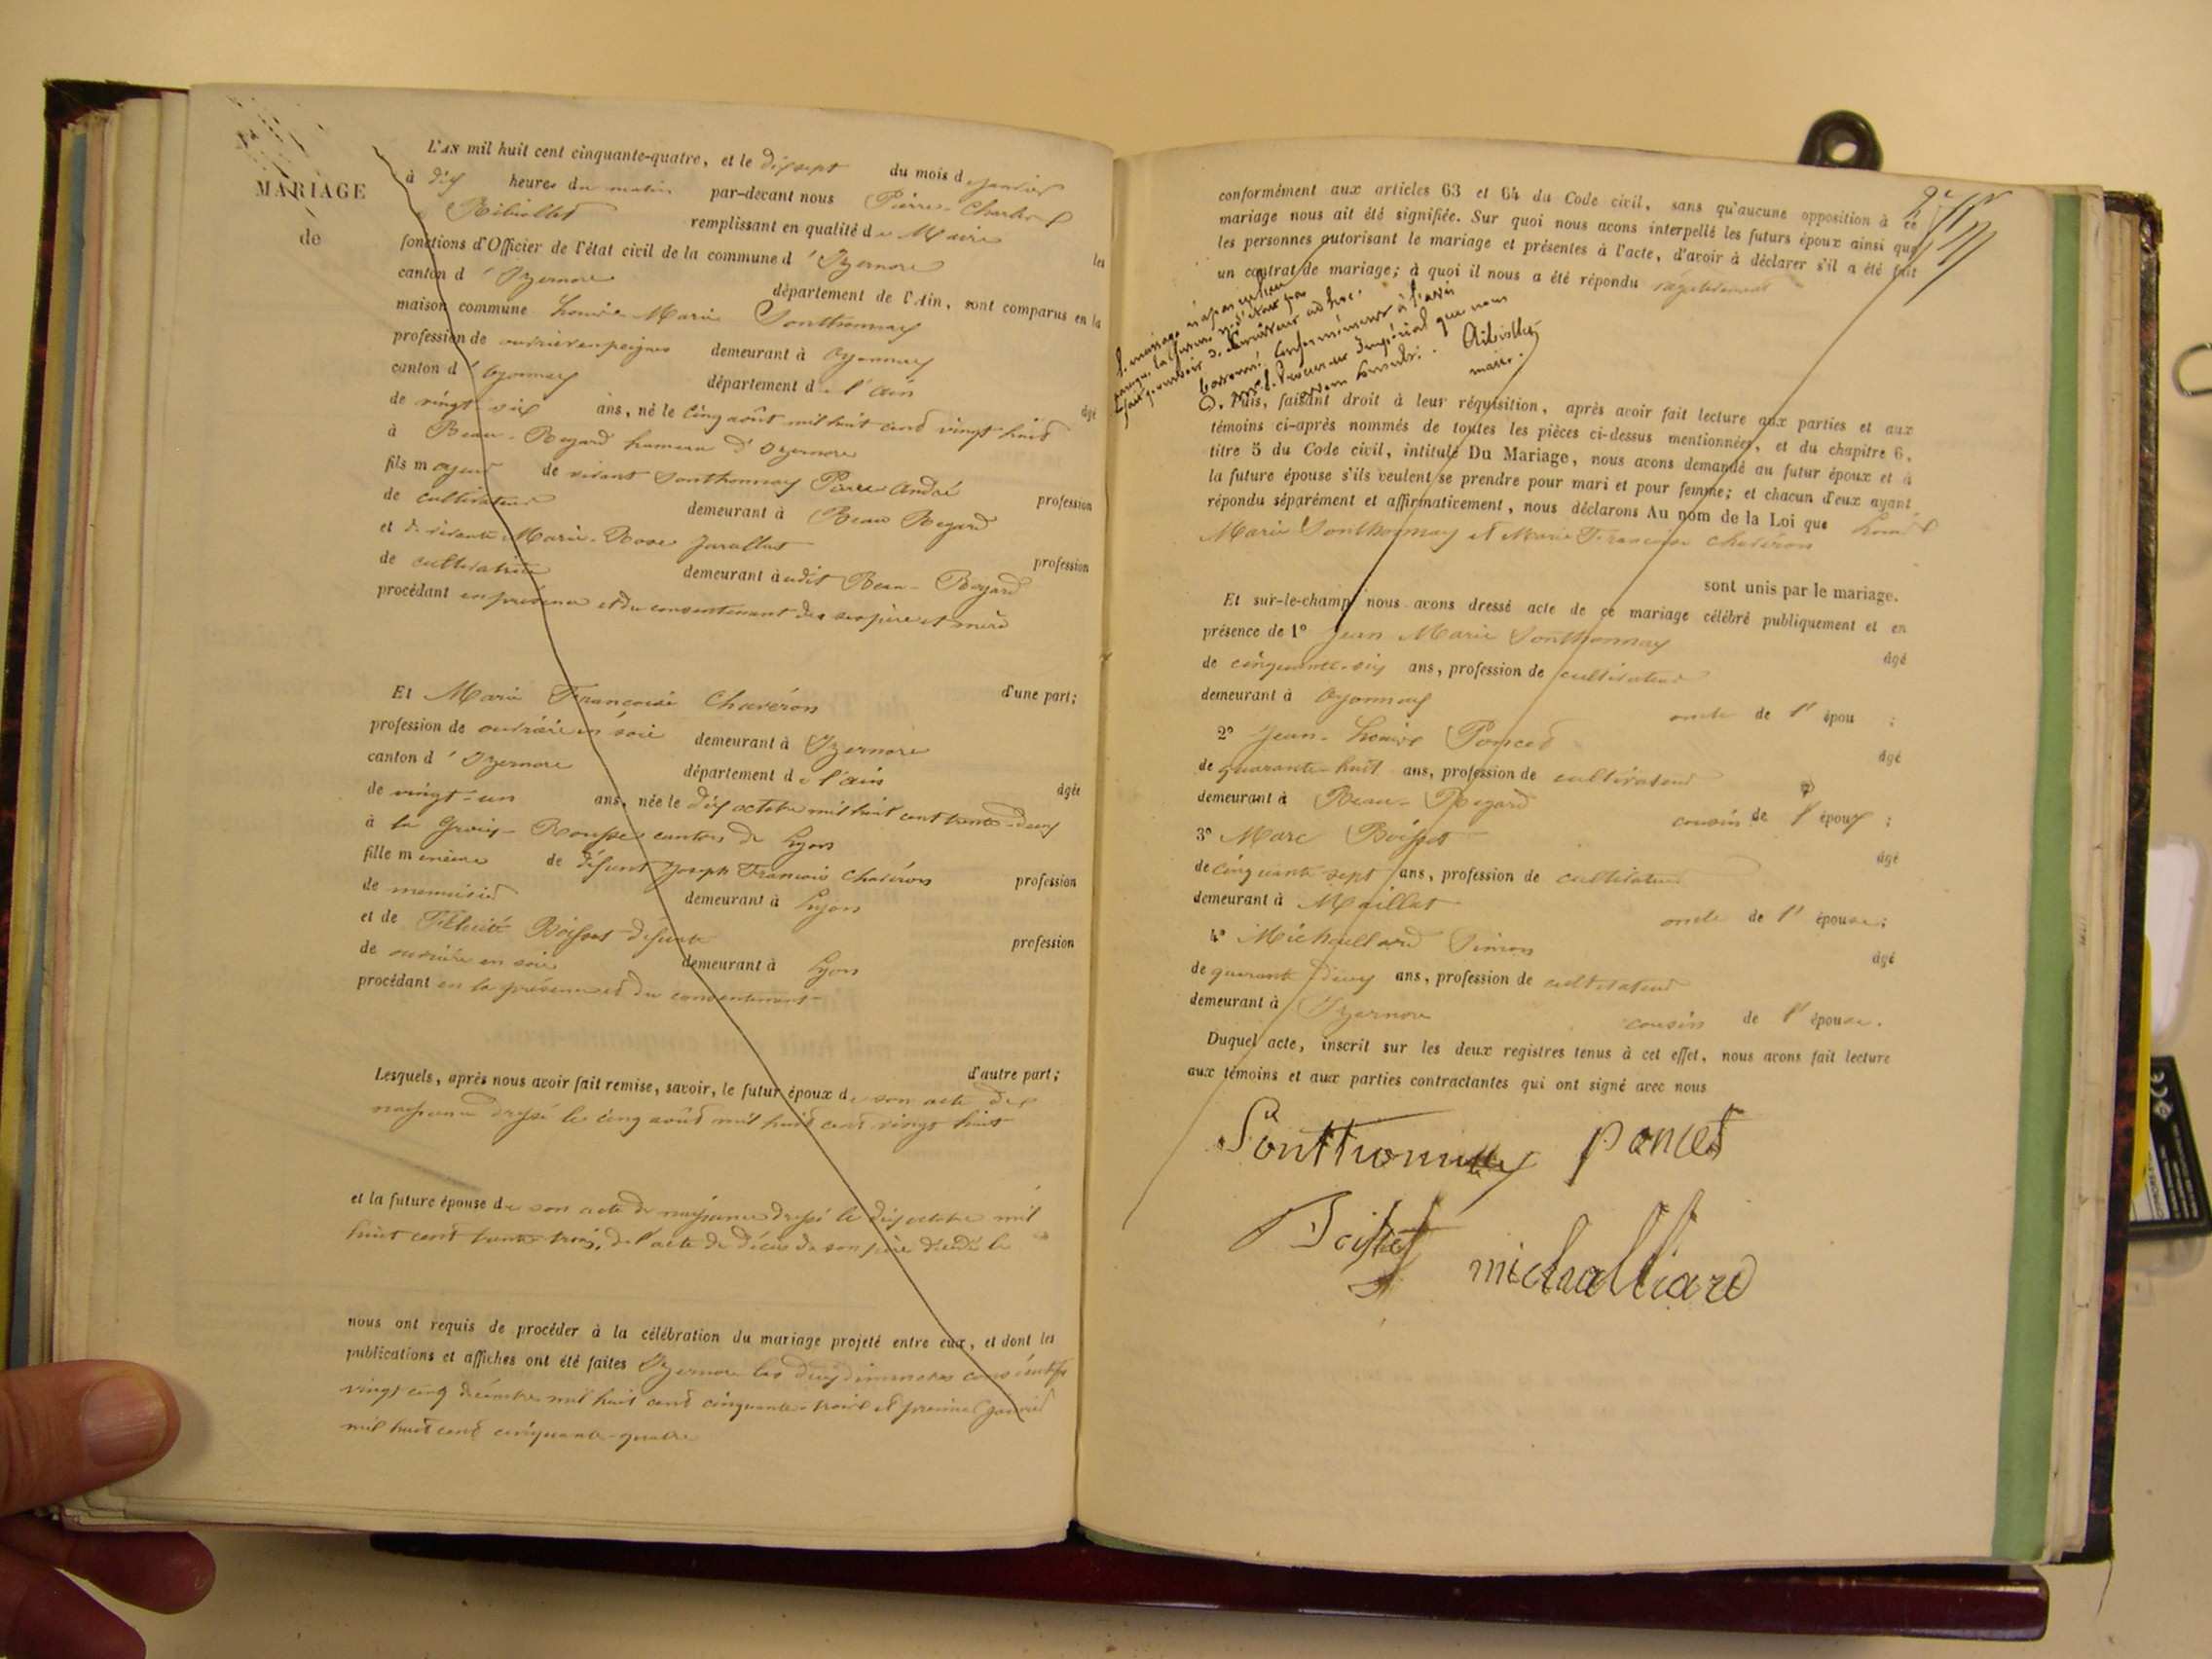 MARIAGE
de
L'AN mil huit cent cinquante-quatre, et le dix sept du mois de janvier
à dix heures du matin par-devant nous Pierre-Charles
Ribiollet remplissant en qualité de Maire les
fonctions d'Officier de l'état civil de la commune d'Izernore
canton d'Izernore département de l'Ain, sont comparus en la
maison commune Louis Marie Sonthonnay
profession de ouvrier en peignes demeurant à Oyonnax
canton d'Oyonnax département de l'ain âgé
de vingt-six ans, né le Cinq août mil huit cent vingt huit
à Beau-Regard hameau d'Izernore
fils majeur de vivant Sonthonnay Pierre André profession
de cultivateur demeurant à Beau Regard
et de vivante Marie-Rose profession
de cultivatrice demeurant audit Beau-Regard
procédant en présence et du consentement des ses père et mère
d'une part;
Et Marie Françoise Chavéron
profession de ouvrière en soie demeurant à Izernore
canton d'Izernore département de l'ain âgée
de vingt-un ans, née le dix octobre mil huit cent trente-deux
à la Croix-Rousse canton de Lyon
fille mineure de défunt Joseph François Chavéron profession
de menuisier demeurant à Lyon
et de Félicité Boisset défunte profession
de ouvrière en soie demeurant à Lyon
procédant en la présence et du consentement
d'autre part;
Lesquels, après nous avoir fait remise, savoir, le futur époux de son acte de
naissance dressé le cinq août mil huit cent vingt huit
et la future épouse de son acte de naissance dressé le dix octobre mil
huit cent trente trois, de l'acte de décès de son père décédé le
nous ont requis de procéder à la célébration du mariage projeté entre eux, et dont les
publications et affiches ont été faites Izernore les deux dimanches consécutifs
vingt cinq décembre mil huit cent cinquante-trois et premier janvier
mil huit cent cinquante-quatre
conformément aux articles 63 et 64 du Code civil, sans qu'aucune opposition à ce
mariage nous ait été signifiée. Sur quoi nous avons interpellé les futurs époux ainsi que
les personnes autorisant le mariage et présentes à l'acte, d'avoir à déclarer s'il a été fait
un contrat de mariage; à quoi il nous a été répondu négativement
le mariage n'a pas eu lieu
parce que la future
ad hoc.
conformément à l'avis
Procureur Impérial que nous
avons consulté. Ribiollet
maire.
Puis, faisant droit à leur réquisition, après avoir fait lecture aux parties et aux
témoins ci-après nommés de toutes les pièces ci-dessus mentionnées, et du chapitre 6,
titre 5 du Code civil, intitulé Du Mariage, nous avons demandé au futur époux et à
la future épouse s'ils veulent se prendre pour mari et pour femme; et chacun d'eux ayant
répondu séparément et affirmativement, nous déclarons Au nom de la Loi que Louis
Marie Sonthonnay et Marie Françoise Chavéron
sont unis par le mariage.
Et sur-le-champ nous avons dressé acte de ce mariage célébré publiquement et en
présence de 1° Jean Marie Sonthonnay âgé
de cinquante-six ans, profession de cultivateur
demeurant à Oyonnax oncle de l'épou ;
2° Jean-Louis Poncet âgé
de quarante-huit ans, profession de cultivateur
demeurant à Beau-Regard cousin de l'époux ;
3° Marc Boisset âgé
de cinquante sept ans, profession de cultivateur
demeurant à Maillat oncle de l'épouse ;
4° Michaillard Simon âgé
de quarante deux ans, profession de cultivateur
demeurant à Izernore cousin de l'épouse.
Duquel acte, inscrit sur les deux registres tenus à cet effet, nous avons fait lecture
aux témoins et aux parties contractantes qui ont signé avec nous
Sonthonnay poncet
Boisset michalliard